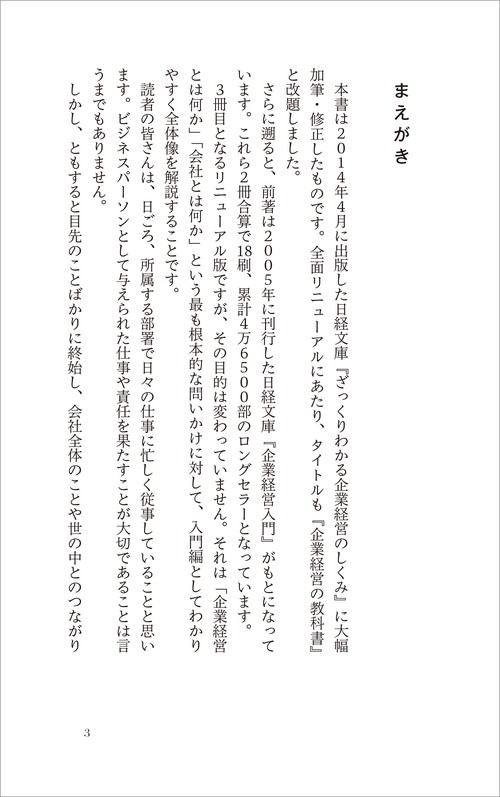 まえがき
本書は2014年4月に出版した日経文庫『ざっくりわかる企業経営のしくみ』に大幅
加筆・修正したものです。全面リニューアルにあたり、タイトルも『企業経営の教科書』
と改題しました。
さらに遡ると、前著は2005年に刊行した日経文庫『企業経営入門』がもとになって
います。これら2冊合算で18刷、累計4万6500部のロングセラーとなっています。
3冊目となるリニューアル版ですが、その目的は変わっていません。それは「企業経営
とは何か」「会社とは何か」という最も根本的な問いかけに対して、入門編としてわかり
やすく全体像を解説することです。
読者の皆さんは、日ごろ、所属する部署で日々の仕事に忙しく従事していることと思い
ます。ビジネスパーソンとして与えられた仕事や責任を果たすことが大切であることは言
うまでもありません。
しかし、ともすると目先のことばかりに終始し、会社全体のことや世の中とのつながり
3